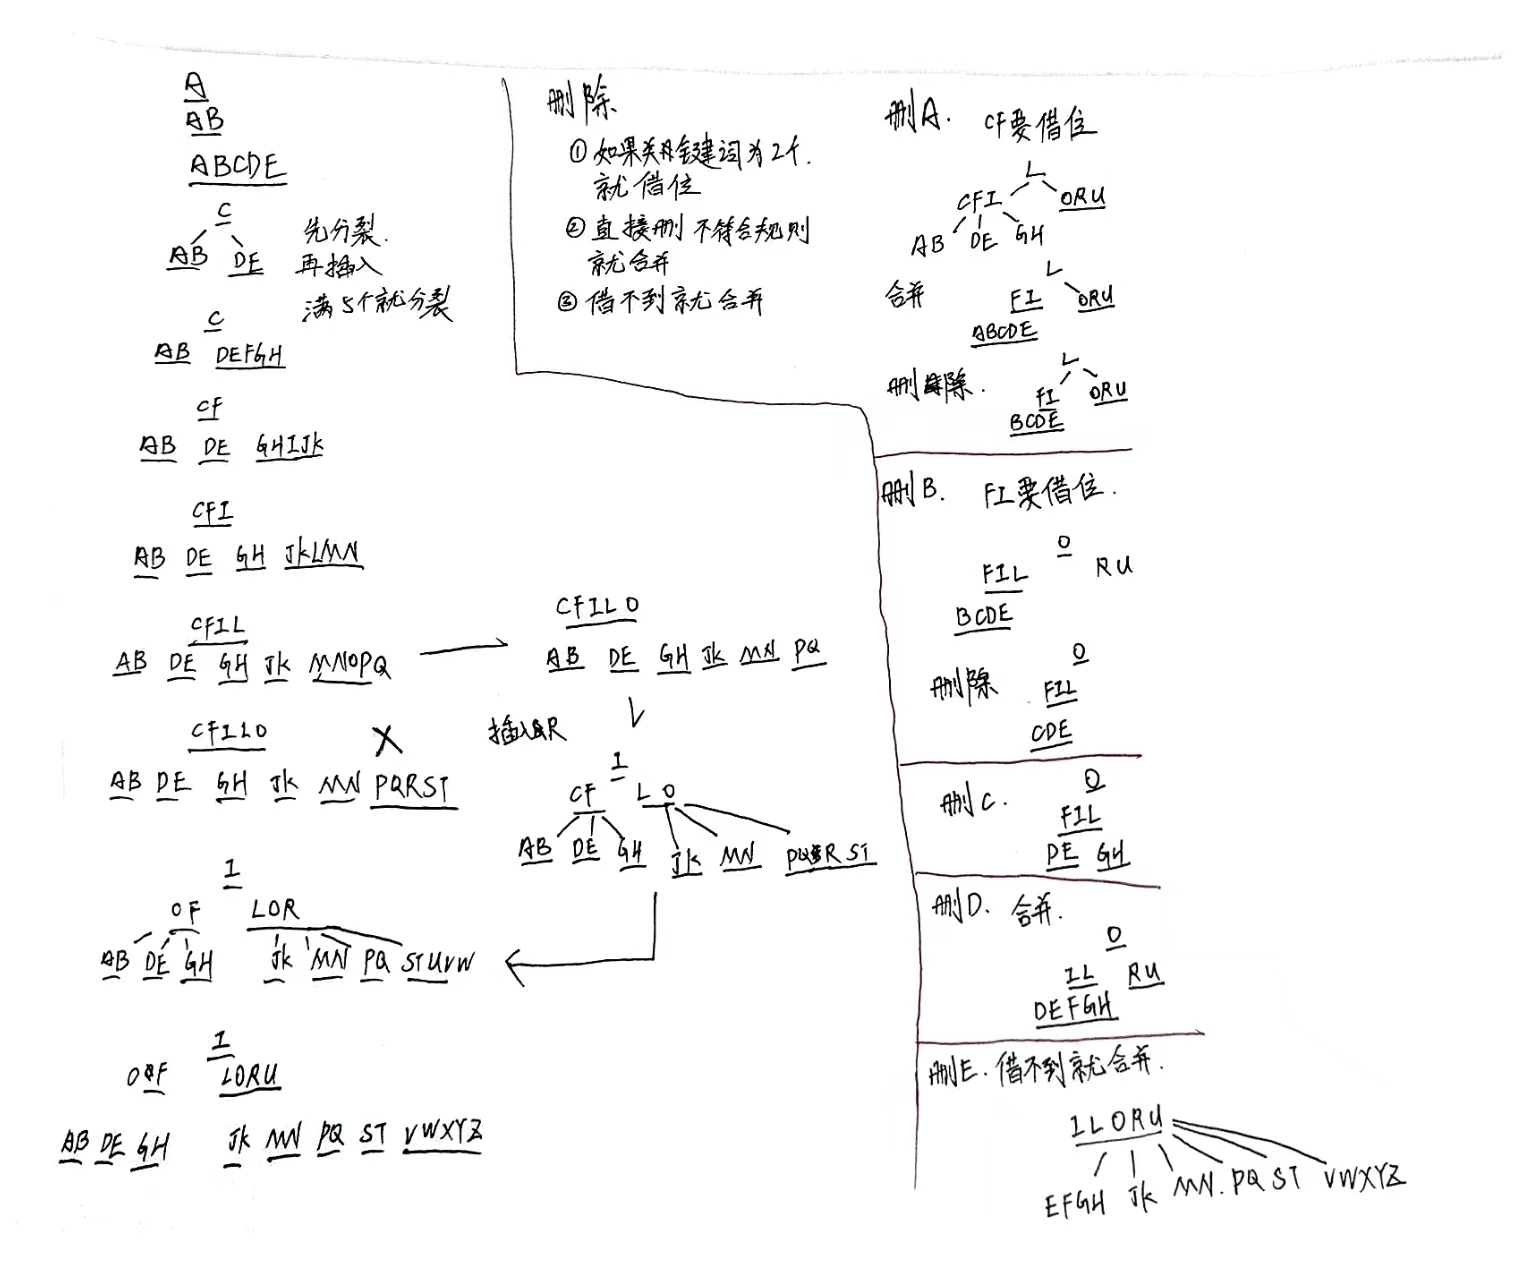 A
AB
ABCDE
C
AB DE
先分裂.
再插入
满5个就分裂
C
AB DEFGH
CF
AB DE GHIJK
CFI
AB DE GH JKLMN
CFIL
AB DE GH JK MNOPQ
CFILO
AB DE GH JK MN PQ
CFILO X
AB DE GH JK MN PQRST
插入R
I
CF LO
AB DE GH JK MN PQRST
I
OF LOR
AB DE GH JK MN PQ STUVW
I
OF LORU
AB DE GH JK MN PQ ST VWXYZ
删除
①如果关键词为2个.
就借位
②直接删不符合规则
就合并
③借不到就合并
删A. CF要借位
L
CFI ORU
AB DE GH
合并
L
FI ORU
ABCDE
删除.
L
FI ORU
BCDE
删B. FI要借位.
O
FIL RU
BCDE
删除
O
FIL
CDE
删C.
O
FIL
DE GH
删D. 合并.
O
IL RU
DEFGH
删E. 借不到就合并.
ILORU
EFGH JK MN. PQ ST VWXYZ